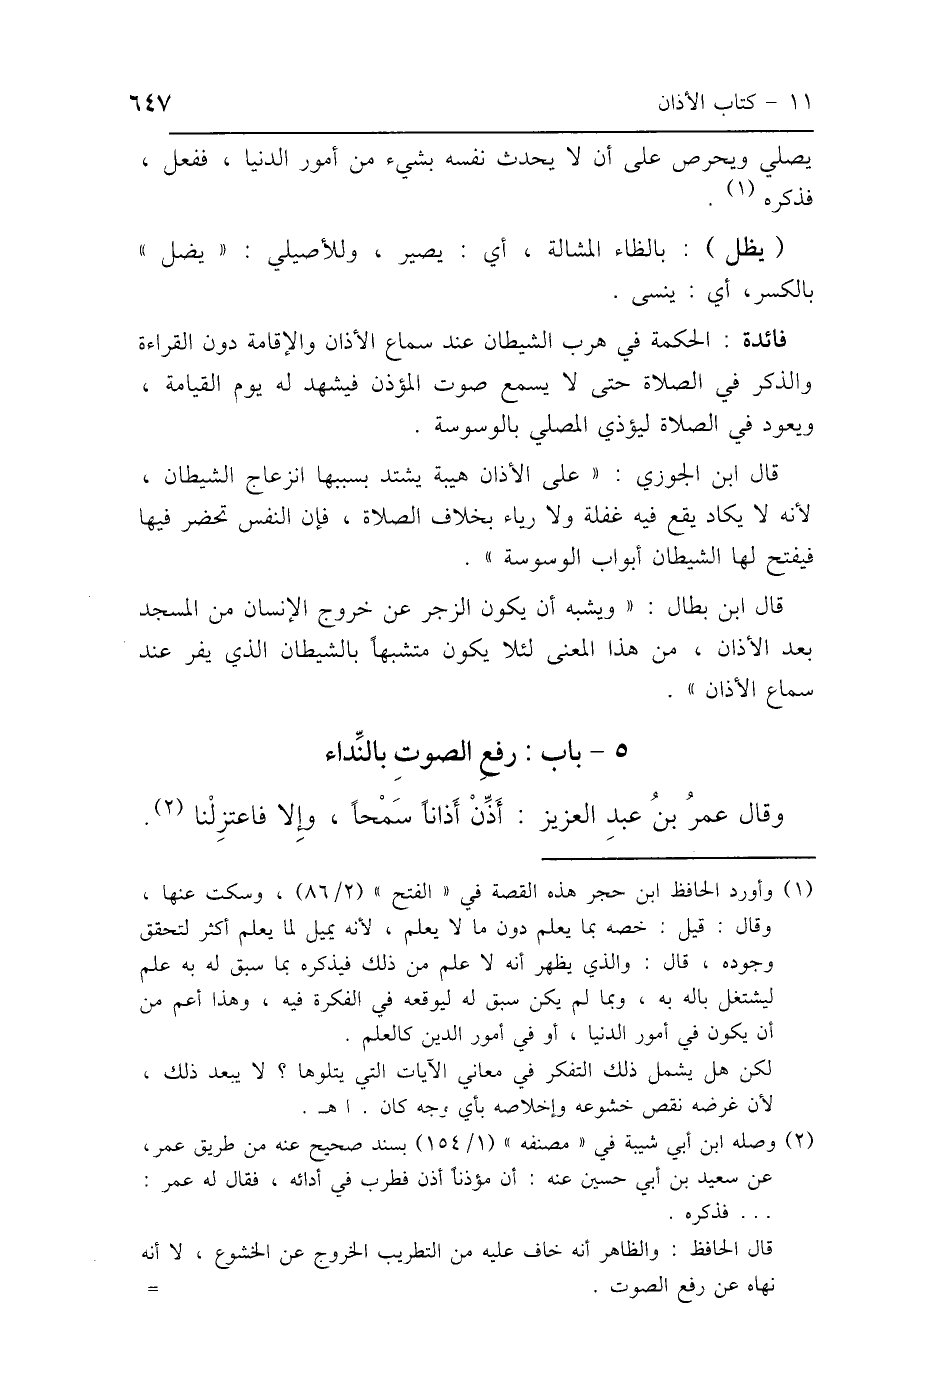 ١١ - كتاب الأذان ٦٤٧
يصلي ويحرص على أن لا يحدث نفسه بشيء من أمور الدنيا ، ففعل ،
فذكره (١) .
( يظل ) : بالظاء المشالة ، أي : يصير ، وللأصيلي : « يضل »
بالكسر، أي : ينسى .
فائدة : الحكمة في هرب الشيطان عند سماع الأذان والإقامة دون القراءة
والذكر في الصلاة حتى لا يسمع صوت المؤذن فيشهد له يوم القيامة ،
ويعود في الصلاة ليؤذي المصلي بالوسوسة .
قال ابن الجوزي : « على الأذان هيبة يشتد بسببها انزعاج الشيطان ،
لأنه لا يكاد يقع فيه غفلة ولا رياء بخلاف الصلاة ، فإن النفس تحضر فيها
فيفتح لها الشيطان أبواب الوسوسة » .
قال ابن بطال : « ويشبه أن يكون الزجر عن خروج الإنسان من المسجد
بعد الأذان ، من هذا المعنى لئلا يكون متشبهاً بالشيطان الذي يفر عند
سماع الأذان » .
٥ - باب : رفعِ الصوتِ بالنِّداء
وقال عمرُ بنُ عبدِ العزيز : أَذِّنْ أَذاناً سَمْحاً ، وإِلا فاعتزِلْنا (٢).
(١) وأورد الحافظ ابن حجر هذه القصة في « الفتح » (٨٦/٢) ، وسكت عنها ،
وقال : قيل : خصه بما يعلم دون ما لا يعلم ، لأنه يميل لما يعلم أكثر لتحقق
وجوده ، قال : والذي يظهر أنه لا علم من ذلك فيذكره بما سبق له به علم
ليشتغل باله به ، وبما لم يكن سبق له ليوقعه في الفكرة فيه ، وهذا أعم من
أن يكون في أمور الدنيا ، أو في أمور الدين كالعلم .
لكن هل يشمل ذلك التفكر في معاني الآيات التي يتلوها ؟ لا يبعد ذلك ،
لأن غرضه نقص خشوعه وإخلاصه بأي وجه كان . ا هـ .
(٢) وصله ابن أبي شيبة في « مصنفه » (١٥٤/١) بسند صحيح عنه من طريق عمر،
عن سعيد بن أبي حسين عنه : أن مؤذناً أذن فطرب في أدائه ، فقال له عمر :
... فذكره .
قال الحافظ : والظاهر أنه خاف عليه من التطريب الخروج عن الخشوع ، لا أنه
نهاه عن رفع الصوت . =